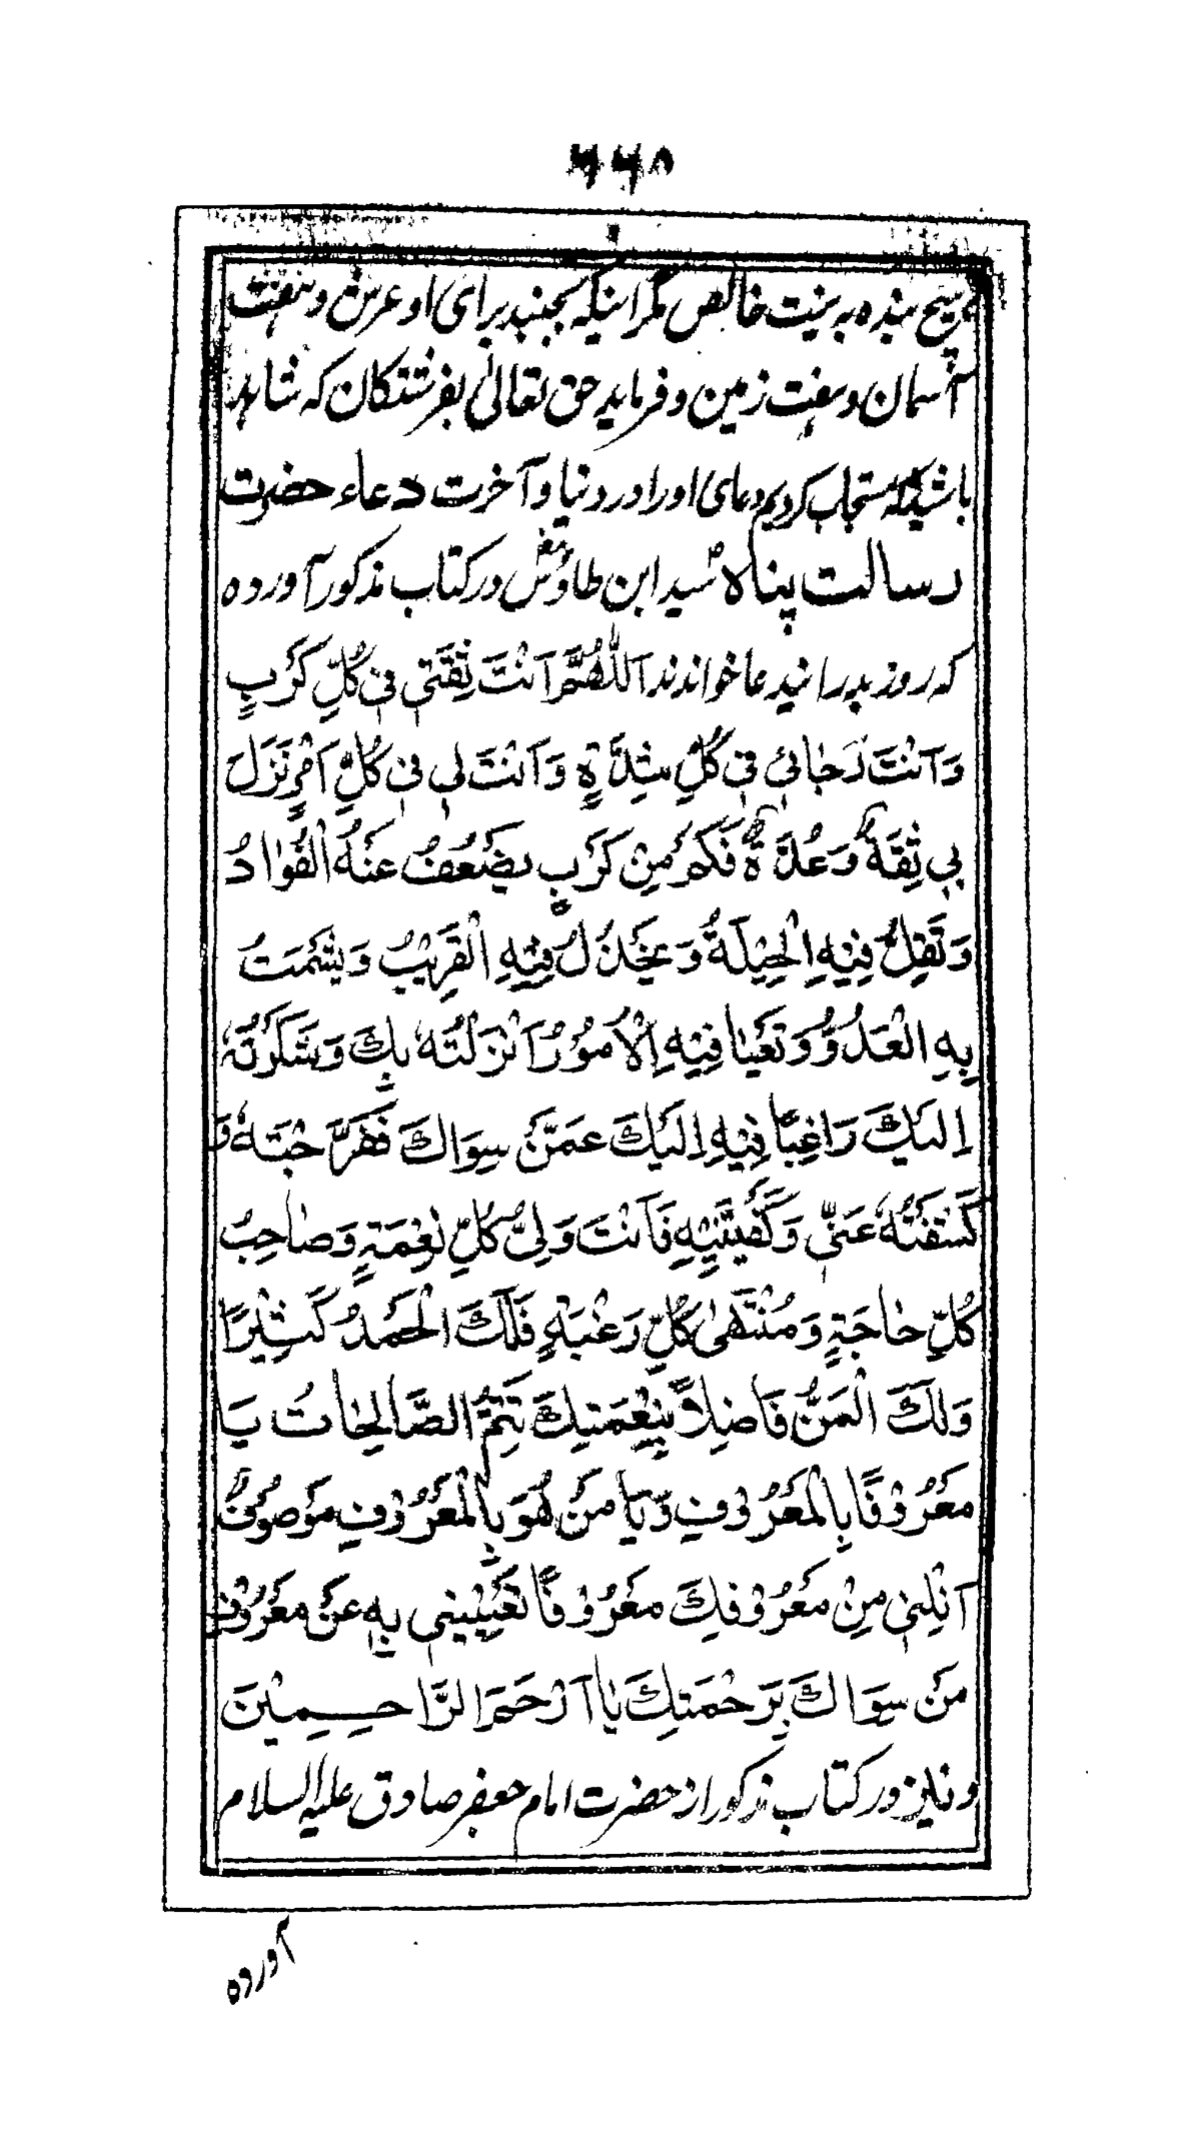 ۶۶۵
هیچ بنده به نیت خالص مگر اینکه بجنبد برای او عرش و هفت
آسمان و هفت زمین و فرماید حق تعالی بفرشتگان که شاهد
باشیدکه مستجاب کردیم دعای او را در دنیا و آخرت دعاء حضرت
رسالت پناه ص سید ابن طاوس در کتاب مذکور آورده
که روز بدر اینیدعا خواندند اَللّٰهُمَّ اَنْتَ ثِقَتِیْ فِیْ کُلِّ کَرْبٍ
وَ اَنْتَ رَجَائِیْ فِیْ کُلِّ شِدَّةٍ وَ اَنْتَ لِی فِیْ کُلِّ اَمْرٍ نَزَلَ
بِی ثِقَةٌ وَ عُدَّةٌ فَکَمْ مِنْ کَرْبٍ یَضْعُفُ عَنْهُ الْفُوَادُ
وَ تَقِلُّ فِیْهِ الْحِیْلَةُ وَ یَخْذُلُ فِیْهِ الْقَرِیْبُ وَ یَشْمَتُ
بِهِ الْعَدُوُّ وَ تَعْیَا فِیْهِ اِلْاُمُوْرُ اَنْزَلْتُهٗ بِكَ وَ شَکَرْتُهٗ
اِلَیْكَ رَاغِبًا فِیْهِ اِلَیْكَ عَمَّنْ سِوَاكَ فَفَرَّجْتَهٗ وَ
کَشَفْتَهٗ عَنِّیْ وَ کَفَیْتَنِیْهِ فَاَنْتَ وَلِیُّ کُلِّ نِعْمَةٍ وَ صَاحِبُ
کُلِّ حَاجَةٍ وَ مُنْتَهٰی کُلِّ رَغْبَةٍ فَلَكَ الْحَمْدُ کَثِیْرًا
وَ لَكَ الْمَنُّ فَاضِلًا بِنِعْمَتِكَ تَتِمُّ الصَّالِحَاتُ یَا
مَعْرُوْفًا بِالْمَعْرُوْفِ وَّیَا مَنْ هُوَ بِالْمَعْرُوْفِ مَوْصُوْفٌ
اَنِلْنِیْ مِنْ مَعْرُوْفِكَ مَعْرُوْفًا تُغْنِیْنِی بِهٖ عَنْ مَعْرُوْفِ
مَنْ سِوَاكَ بِرَحْمَتِكَ یَا اَرْحَمَ الرَّاحِمِیْنَ
و نیز در کتاب مذکور از حضرت امام جعفر صادق علیه السلام
آورده